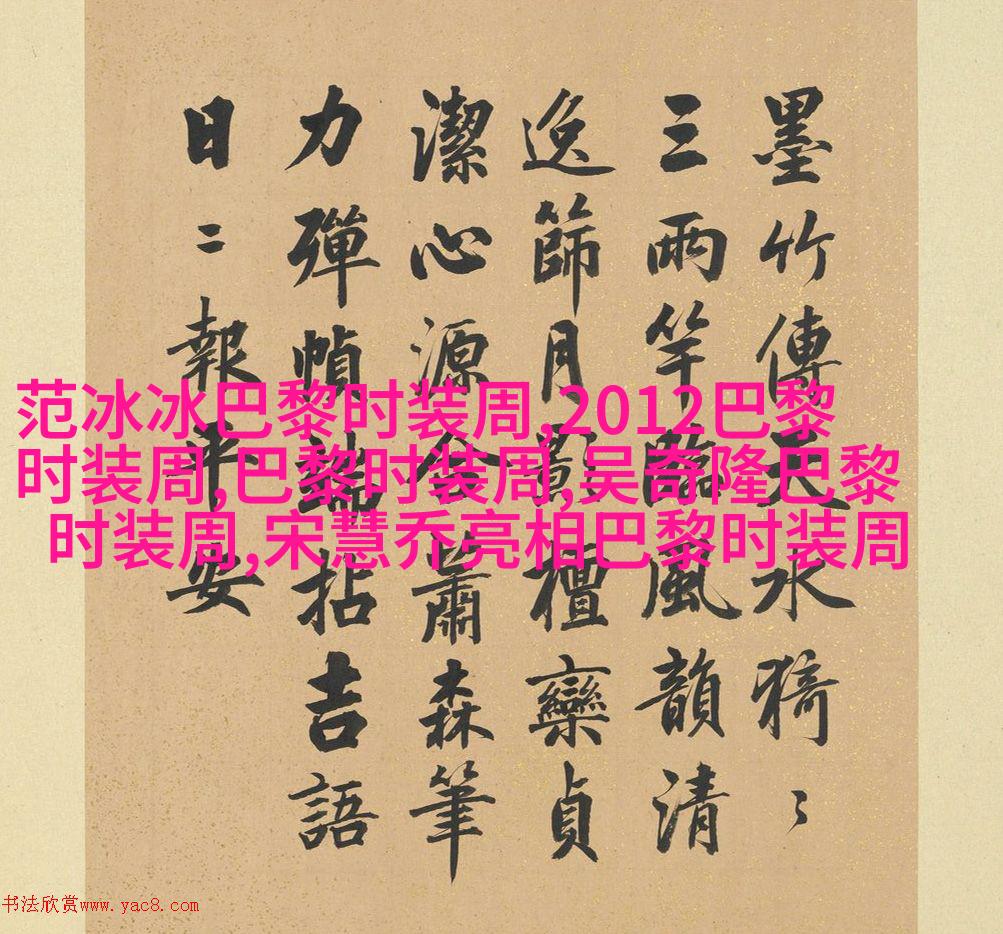 墨竹傳天水猗〻
三兩竿臨風韻清
逸篩月影檀欒貞
潔心源合蕭森筆
力彈幀端拈吉語
日二報平安
范冰冰巴黎时装周,2012巴黎
时装周,巴黎时装周,吴奇隆巴黎
时装周,宋慧乔亮相巴黎时装周
书法欣赏www.yac8.com